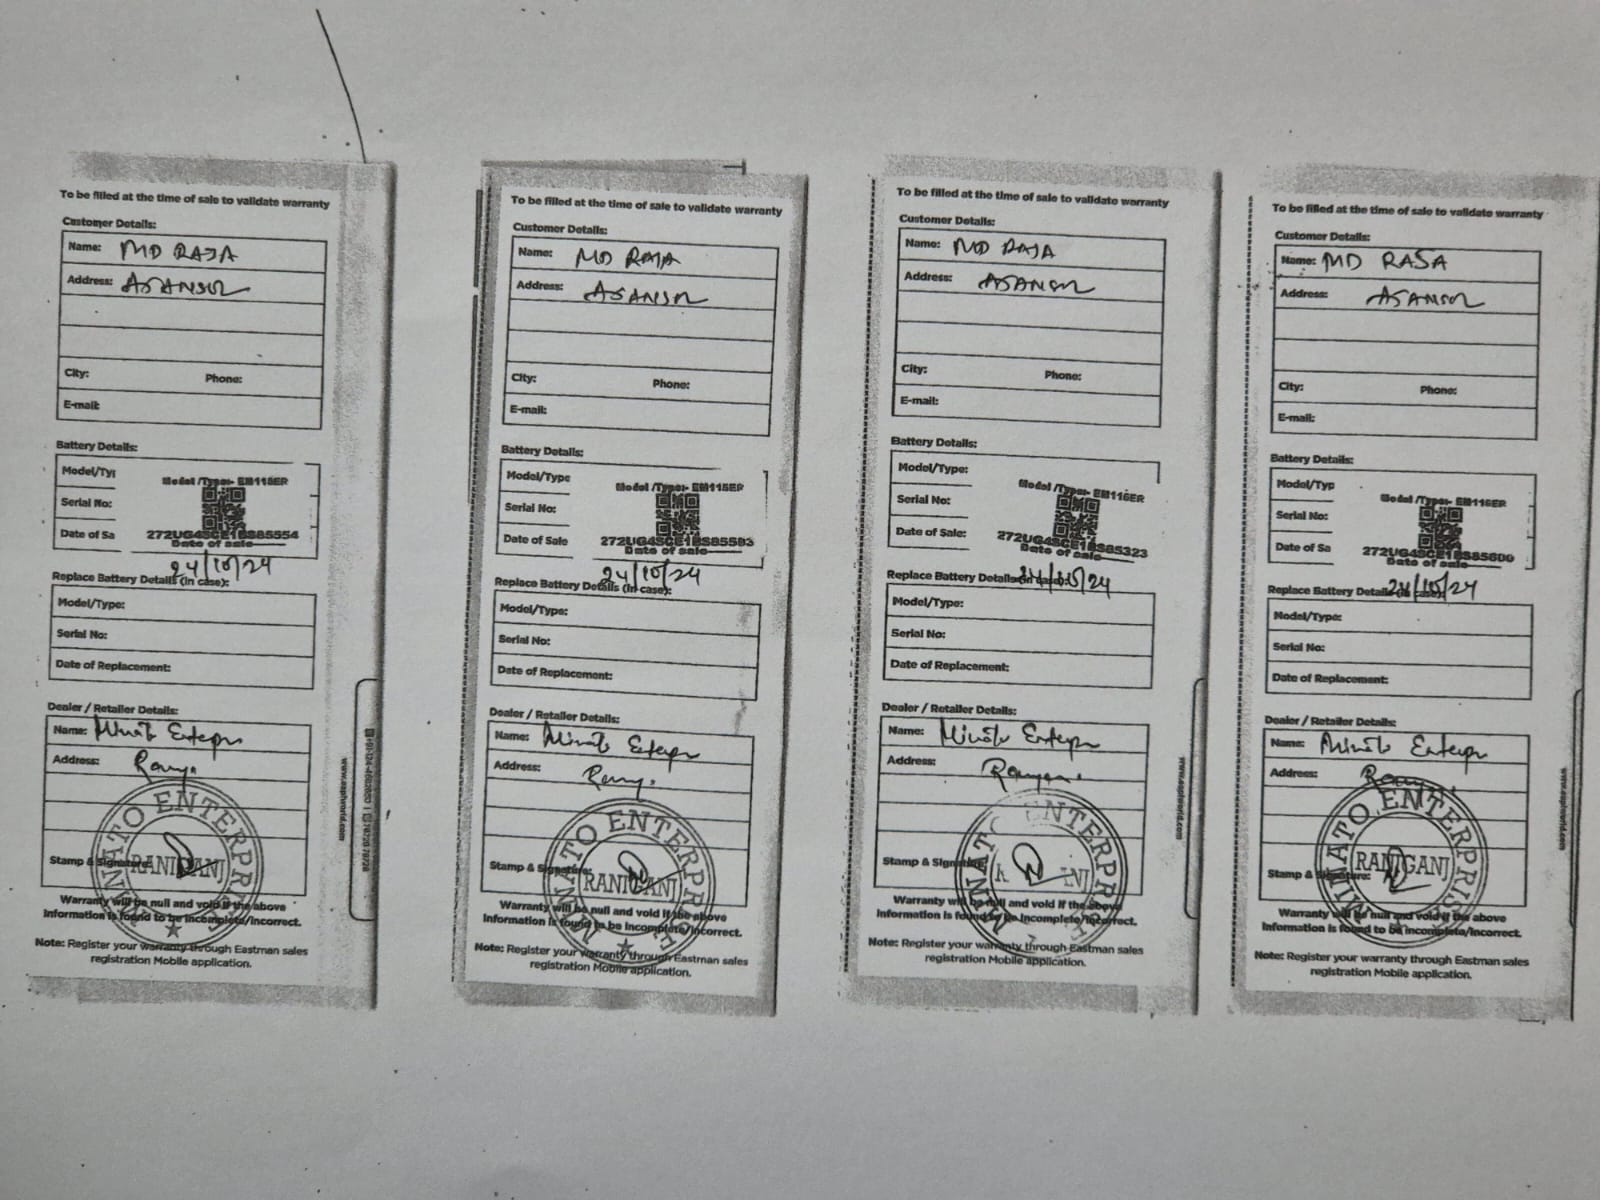 To be filled at the time of sale to validate warranty
Customer Details:
Name: MD RAJA
Address: ASANSOL
City: Phone:
E-mail:
Battery Details:
Model/Typ
Model /Type:- EM115ER
Serial No:
272UG4SCE1BS85554
Date of Sa
Date of sale
24/10/24
Replace Battery Details (In case):
Model/Type:
Serial No:
Date of Replacement:
Dealer / Retailer Details:
Name: Minato Enterpr
Address:
MINATO ENTERPR
RANIGANJ
Stamp & Signature:
Warranty will be null and void if the above
Information is found to be incomplete/incorrect.
Note: Register your warranty through Eastman sales
registration Mobile application.
www.eaplworld.com
To be filled at the time of sale to validate warranty
Customer Details:
Name: MD RAJA
Address: ASANSOL
City: Phone:
E-mail:
Battery Details:
Model/Type
Model /Type:- EM115ER
Serial No:
Date of Sale
Date of sale
24/10/24
Replace Battery Details (In case):
Model/Type:
Serial No:
Date of Replacement:
Dealer / Retailer Details:
Name: Minato Enterpr
Address:
MINATO ENTERPR
RANIGANJ
Stamp & Signature:
Warranty will be null and void if the above
Information is found to be incomplete/incorrect.
Note: Register your warranty through Eastman sales
registration Mobile application.
To be filled at the time of sale to validate warranty
Customer Details:
Name: MD RAJA
Address: ASANSOL
City: Phone:
E-mail:
Battery Details:
Model/Type:
Model /Type:- EM115ER
Serial No:
272UG4SCE1BS85323
Date of Sale:
Date of sale
24/10/24
Replace Battery Details (In case):
Model/Type:
Serial No:
Date of Replacement:
Dealer / Retailer Details:
Name: Minato Enterpr
Address:
Stamp & Signature:
Warranty will be null and void if the above
Information is found to be incomplete/incorrect.
Note: Register your warranty through Eastman sales
registration Mobile application.
www.eaplworld.com
To be filled at the time of sale to validate warranty
Customer Details:
Name: MD RASA
Address: ASANSOL
City: Phone:
E-mail:
Battery Details:
Model/Typ
Model /Type:- EM115ER
Serial No:
272UG4SCE1BS85600
Date of Sa
Date of sale
24/10/24
Replace Battery Details (In case):
Model/Type:
Serial No:
Date of Replacement:
Dealer / Retailer Details:
Name: Minato Enterpr
Address:
MINATO ENTERPRISE
RANIGANJ
Stamp & Signature:
Warranty will be null and void if the above
Information is found to be incomplete/incorrect.
Note: Register your warranty through Eastman sales
registration Mobile application.
www.eaplworld.com